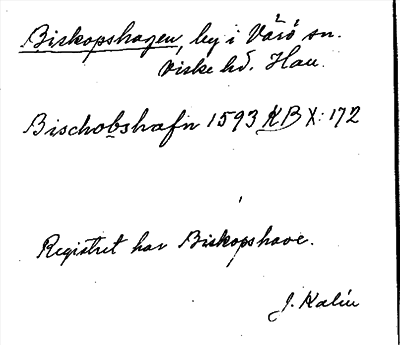 Biskopshagen, by i Värö sn.
Viske hd. Hall.
Bischobshafn 1593 KB X: 172
Registret har Biskopshave.
J. Kalén